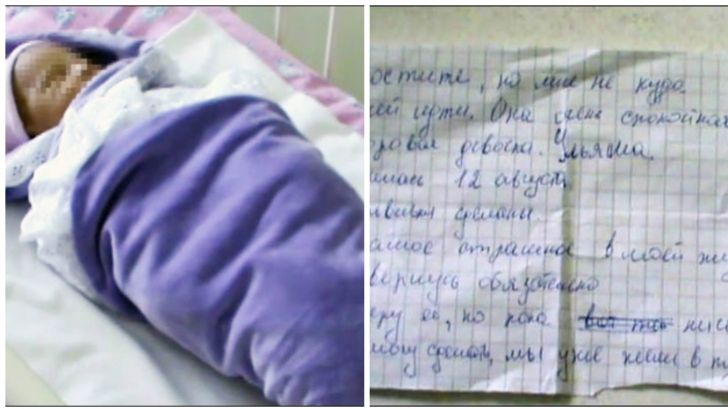 остите, но мне не куда
ней идти. Она очень спокойная
оровая девочка. Ульяша.
илась 12 августа
ививки сделаны.
амое страшное в моей жи
вернусь обязательно
еру ее, но пока
сделать, мы уже жили в п